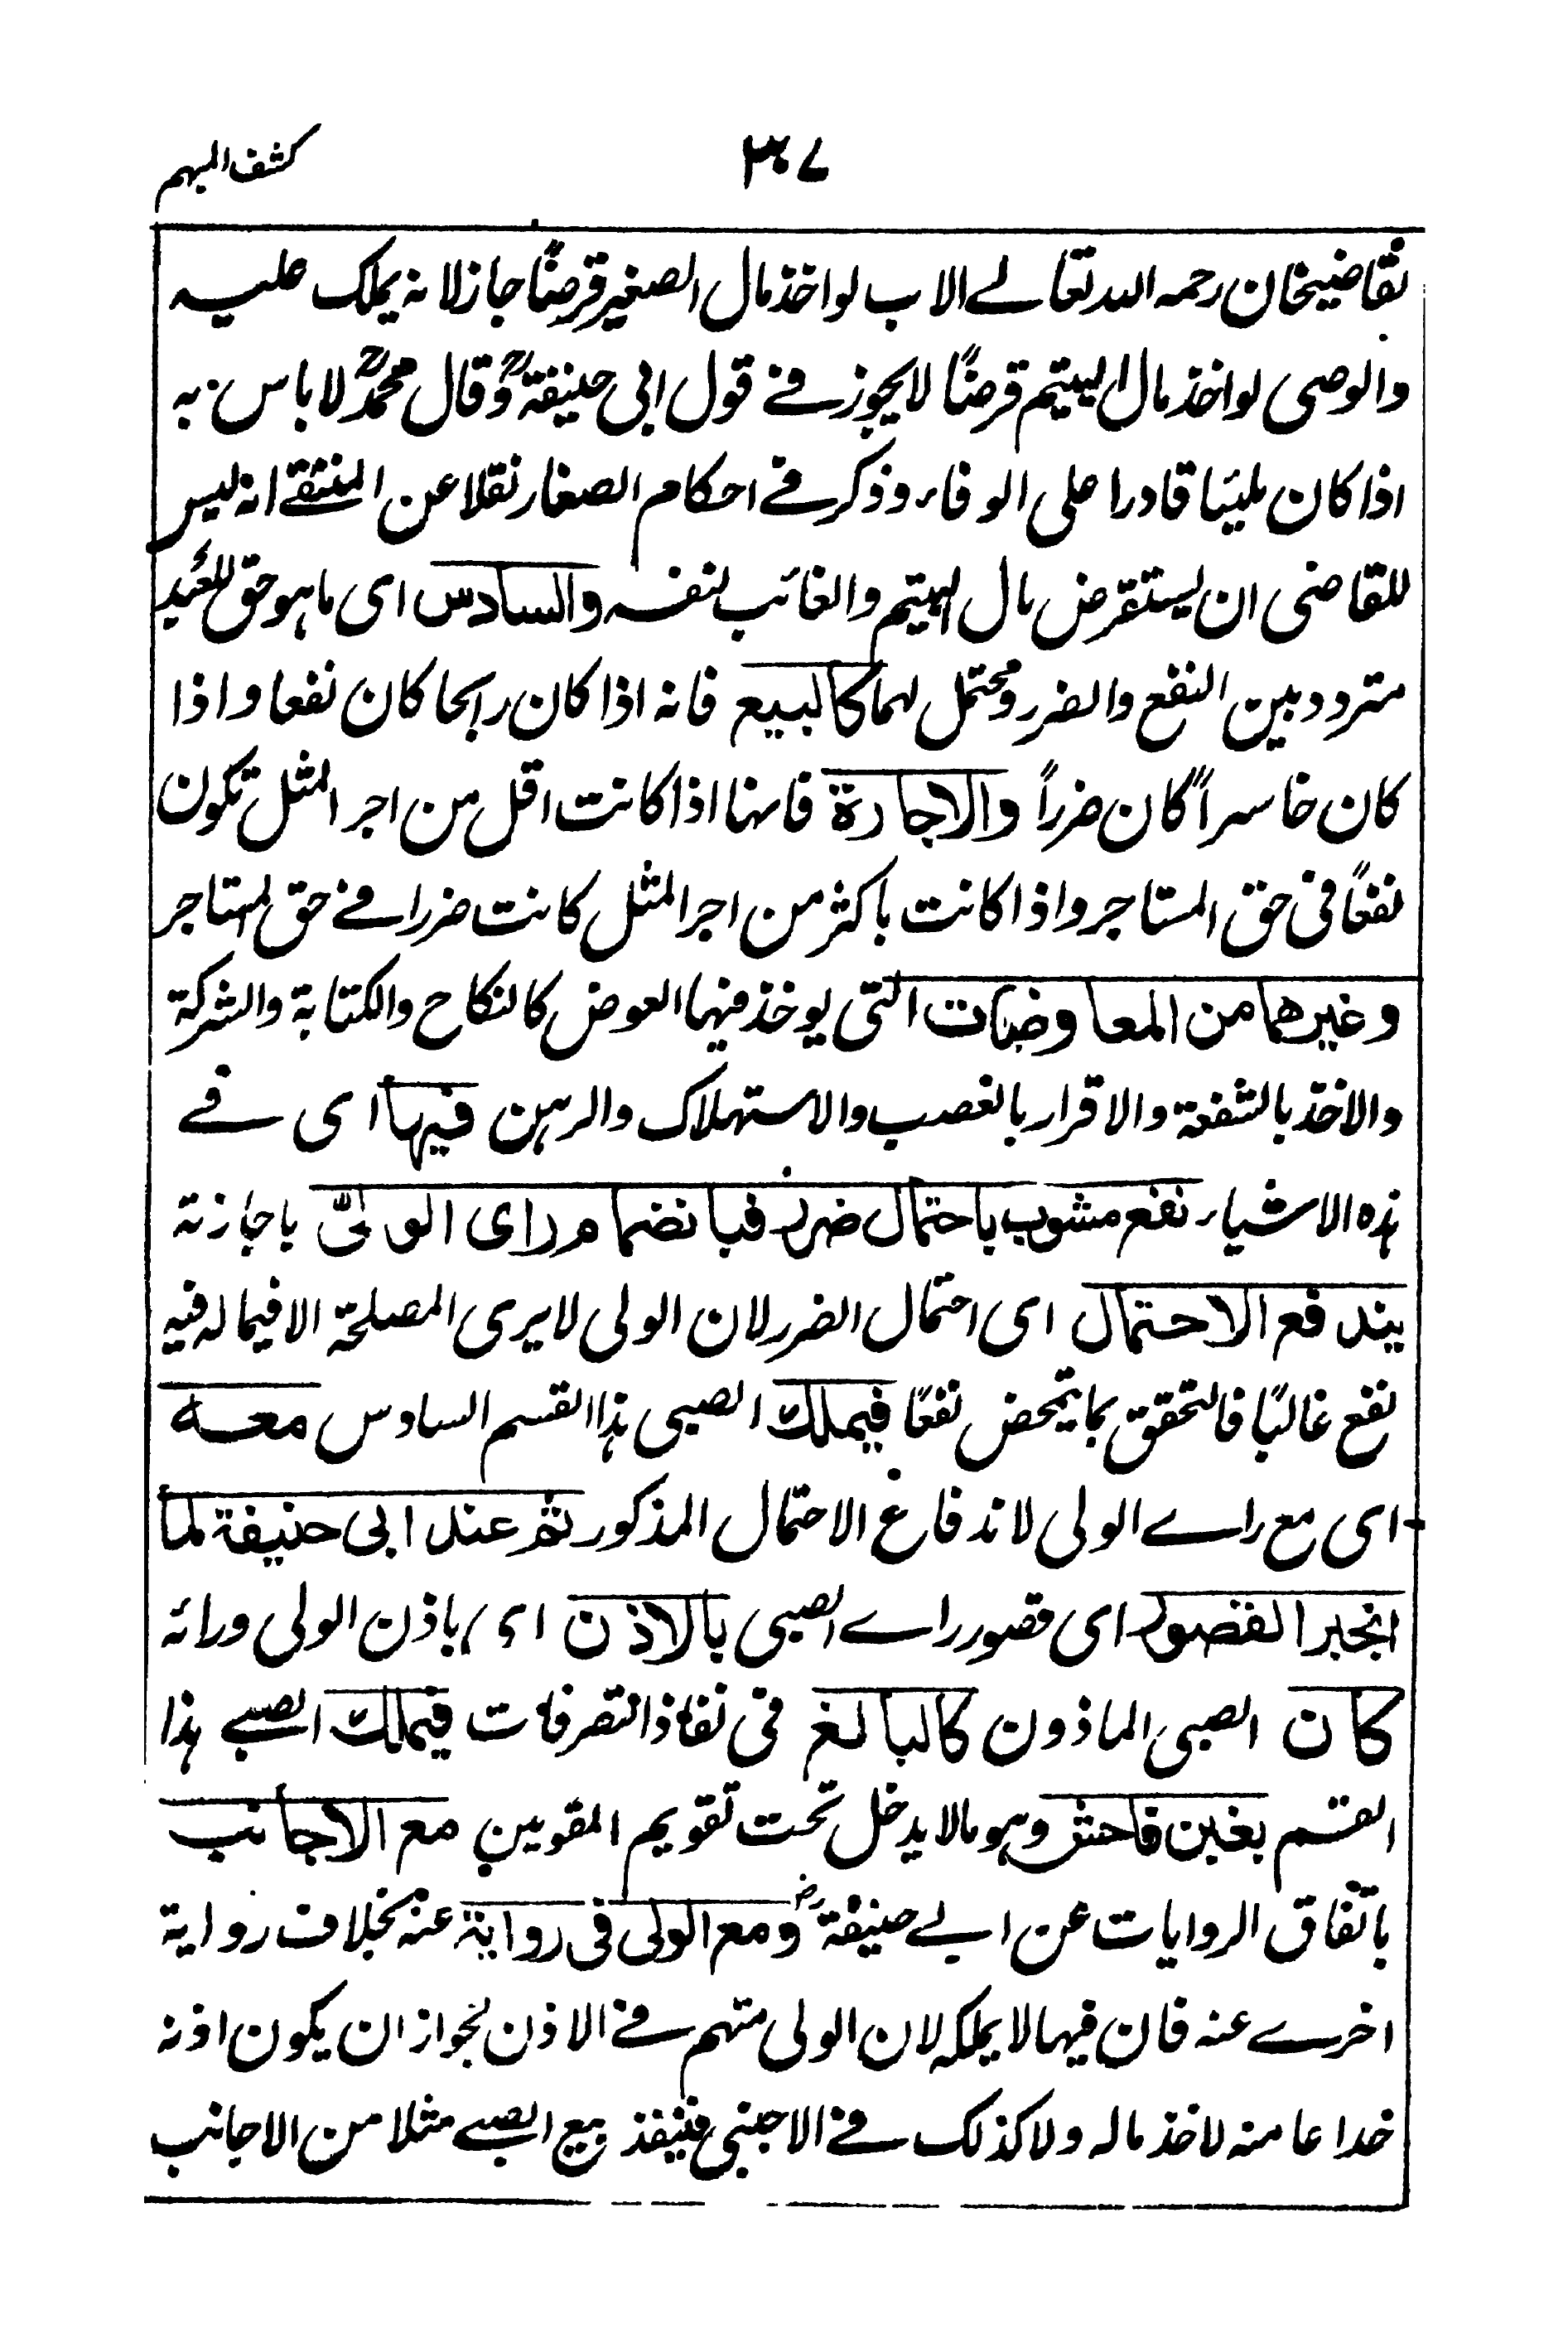 ٣٠٧
كشف المبهم
لقاضيخان رحمه الله تعالے الاب لو اخذ مال الصغير قرضًا جاز لانه يملك عليه
والوصى لو اخذ مال اليتيم قرضًا لا يجوز فے قول ابى حنيفةؒ وقال محمدؒ لا باس به
اذا كان مليئا قادرا على الوفاء وذكر فے احكام الصغار نقلا عن المنتقے انه ليس
للقاضى ان يستقرض مال اليتيم والغائب لنفسه والسادس اى ما هو حق للعبد
متردد بين النفع والضرر ومحتمل لهما كالبيع فانه اذا كان رابحا كان نفعا واذا
كان خاسراً كان ضرراً والاجارة فانها اذا كانت اقل من اجر المثل تكون
نفعًا فى حق المستاجر واذا كانت باكثر من اجر المثل كانت ضررا فے حق المستاجر
وغيرهما من المعاوضات التى يوخذ فيها العوض كالنكاح والكتابة والشركة
والاخذ بالشفعة والاقرار بالغصب والاستهلاك والرهن فيها اى فے
هذه الاشياء نفع مشوب باحتمال ضرر فبانضمام راى الولىّ باجازته
يندفع الاحتمال اى احتمال الضرر لان الولى لا يرى المصلحة الا فيما له فيه
نفع غالبًا فالتحقق بما يتمحض نفعًا فيملك الصبى هذا القسم السادس معه
اى مع راے الولى لاندفاع الاحتمال المذكور ثم عند ابى حنيفة لما
انجبر القصور اى قصور راے الصبى بالاذن اى باذن الولى ورائه
كان الصبى الماذون كالبالغ فى نفاذ التصرفات فيملك الصبے هذا
القسم بغبن فاحش وهو مالا يدخل تحت تقويم المقومين مع الاجانب
باتفاق الروايات عن ابے حنيفةرض ومع الولى فى رواية عنه بخلاف رواية
اخرے عنه فان فيها لا يملكه لان الولى متهم فے الاذن لجواز ان يكون اذنه
خداعا منه لاخذ ماله ولا كذلك فے الاجنبى فينفذ بيع الصبے مثلا من الاجانب